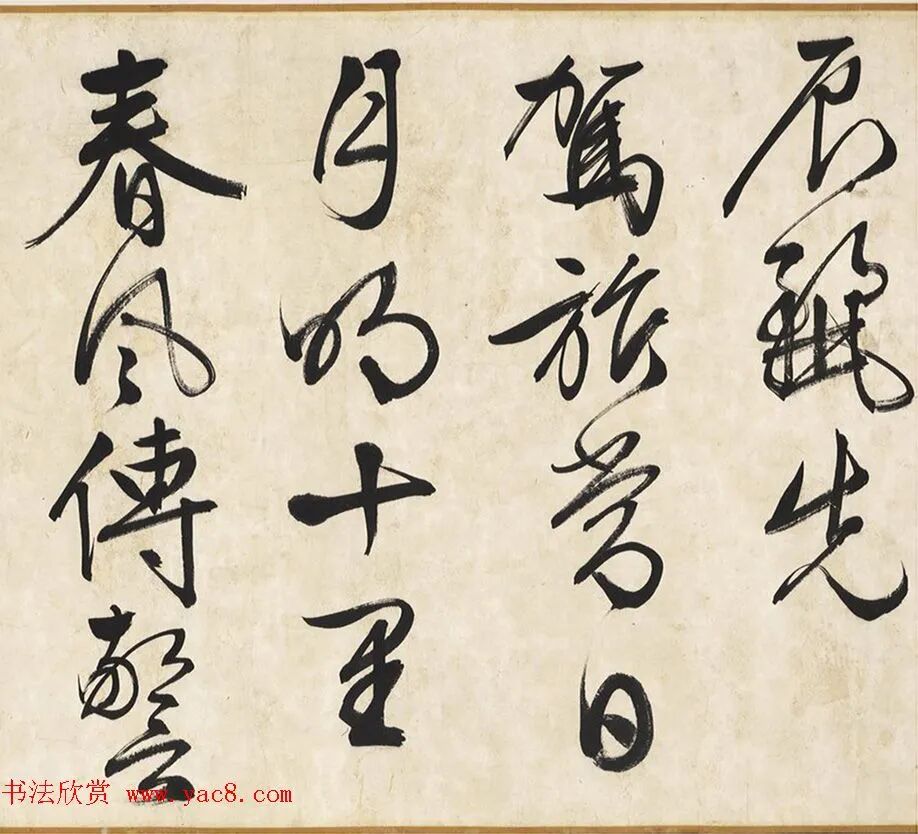 辰麗先
駕旂常日
月明十里
春風傳警
书法欣赏 www.yac8.com